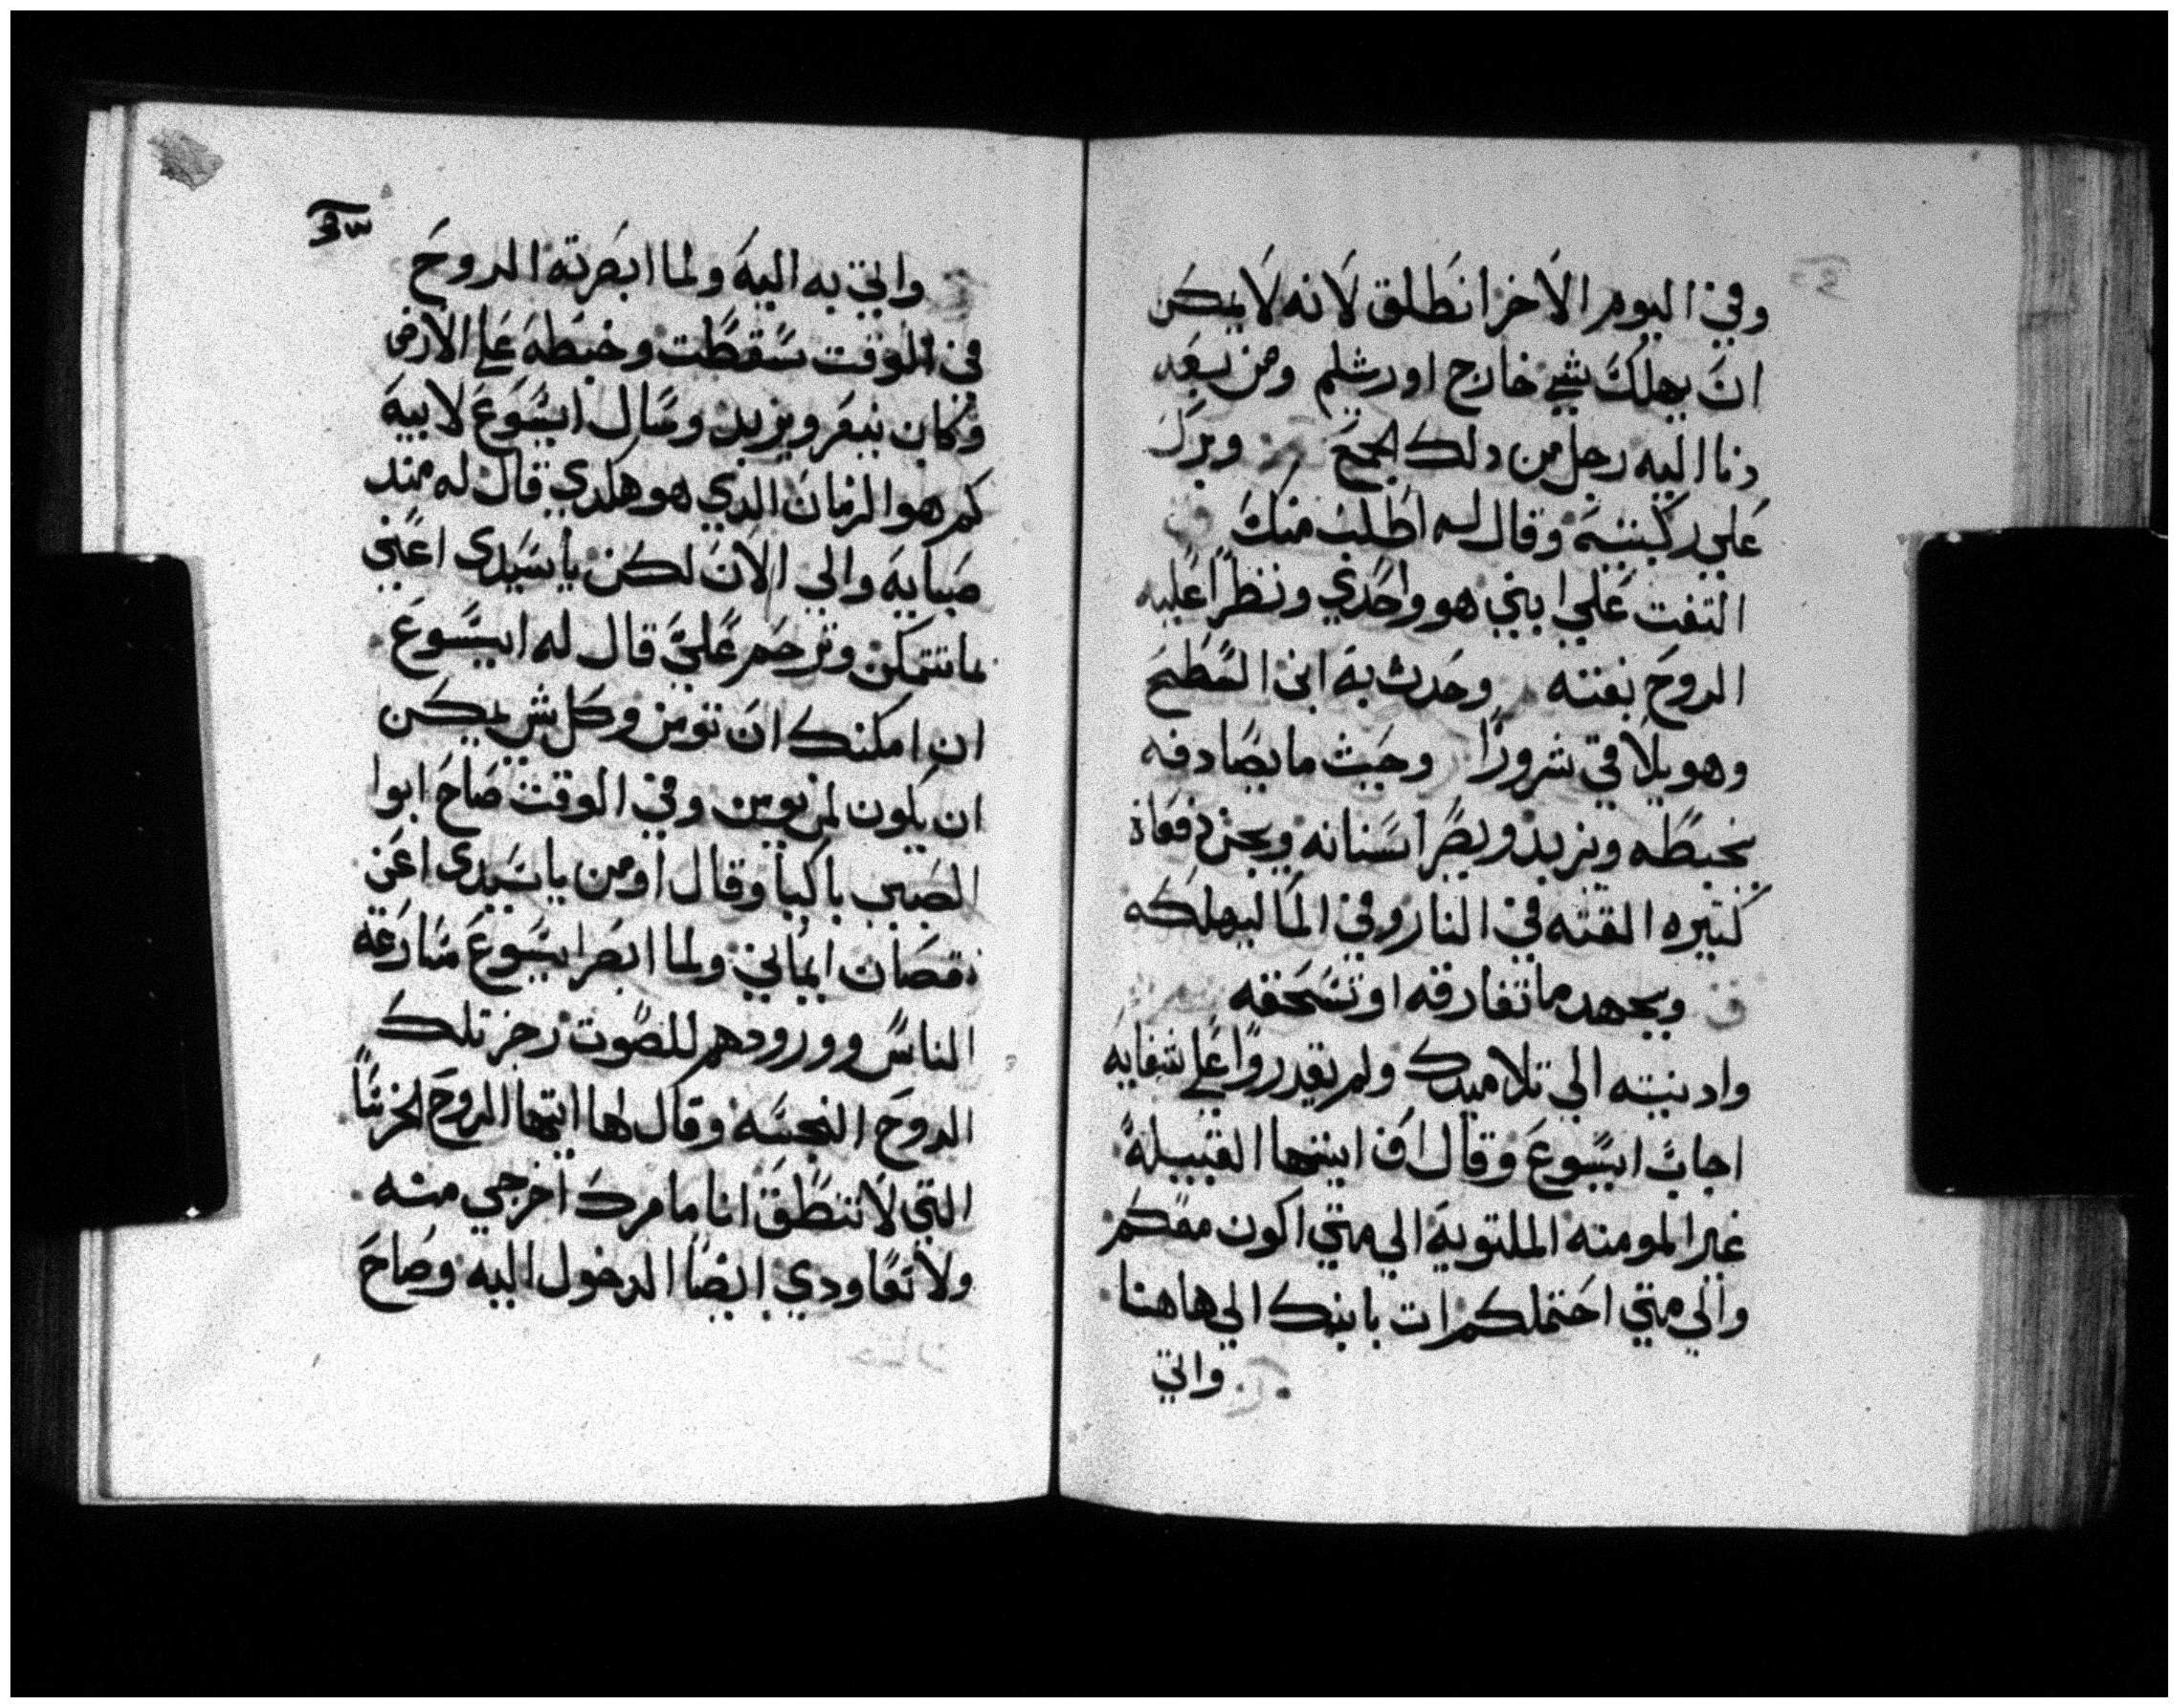 وفي اليوم الاخر انطلق لانه لا يمكن
ان يهلك شي خارج اورشلم ومن بعد
دنا اليه رجل من دلك الجمع وبرك
علي ركبتيه وقال له اطلب منك
التفت علي ابني هو واحدي ونظرا عليه
الروح بغتته وحدث به اني السطيح
وهو يلاقي شرورا وحيث ما يصادفه
يخبطه ويزبد ويصر اسنانه ويحزن دفعاة
كتيره القته في النار وفي الما ليهلكه
وبجهد ما تفارقه او تسحقه
وادنيته الي تلاميدك ولم يقدروا علي شفايه
اجاب ايسوع وقال اف ايتها القبيله
غير المومنه الملتويه الي متي اكون معكم
والي متي احتملكم ات بابنك الي هاهنا
واتي
واتي به اليه ولما ابصرته الروح
في الوقت سقطت وخبطه علي الارض
وكان ينعر ويزبد وسال ايسوع لابيه
كم هو الزمان الدي هو هكدي قال له مند
صبايه والي الان لكن يا سيدي اعني
ما تتمكن وترحم علي قال له ايسوع
ان امكنك ان تومن وكل شي يمكن
ان يكون لمن يومن وفي الوقت صاح ابوا
الصبي باكيا وقال اومن يا سيدي اعن
نقصان ايماني ولما ابصر ايسوع مسارعة
الناس وورودهم للصوت زجر تلك
الروح النجسه وقال لها ايتها الروح الخرسا
التي لا تنطق انا مامرك اخرجي منه
ولا تعاودي ايضا الدخول اليه وصاح